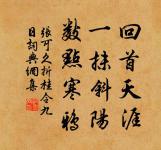 回首天涯
一抹斜陽
數點寒鴉
張可久折桂令九
日詞典綱集